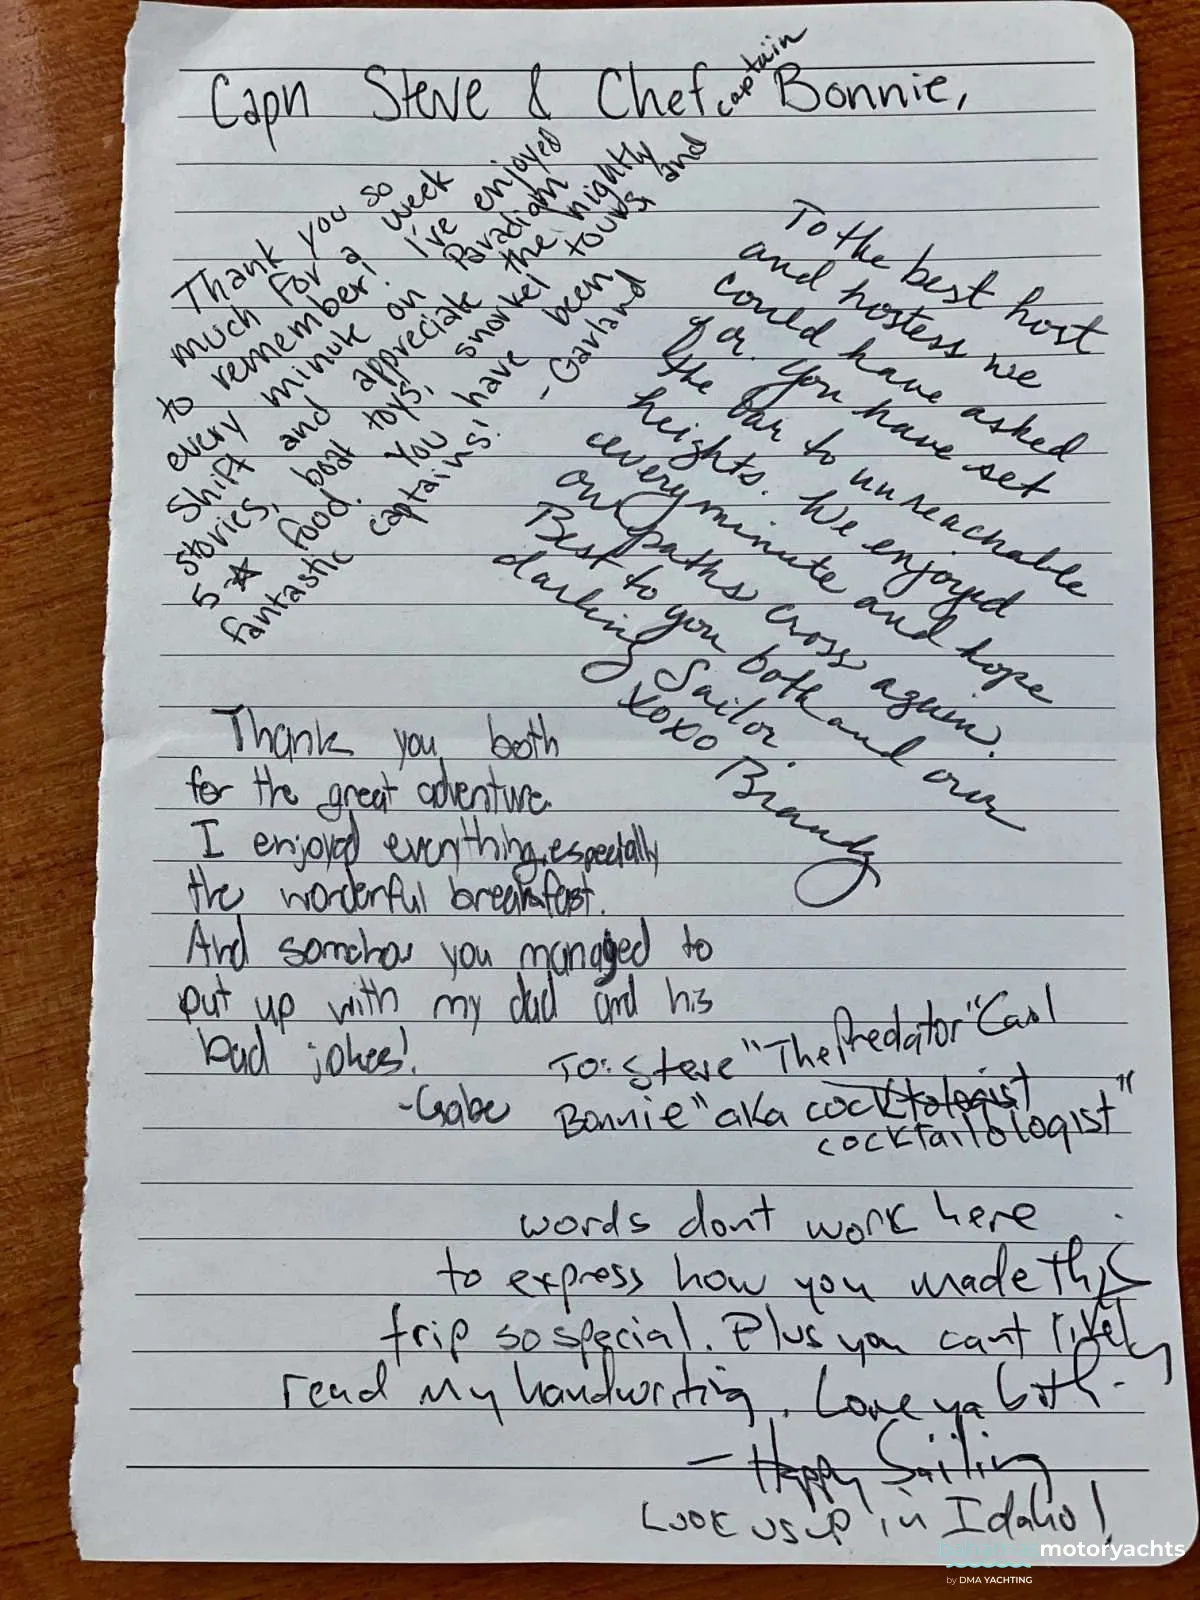 Capn Steve & Chef captain Bonnie,
Thank you so
much for a week
to remember! I've enjoyed
every minute on Paradigm
Shift and appreciate the nightly
stories, boat toys, snorkel tours, and
5 ★ food. You have been
fantastic captains! -Garland
To the best host
and hostess we
could have asked
for. You have set
the bar to unreachable
heights. We enjoyed
every minute and hope
our paths cross again.
Best to you both and our
darling Sailor.
xoxo Brandy
Thank you both
for the great adventure.
I enjoyed everything, especially
the wonderful breakfast.
And somehow you managed to
put up with my dad and his
bad jokes!
-Gabe
To: Steve "The Predator" Carl
Bonnie "aka cocktologist
cocktailologist"
words dont work here
to express how you made this
trip so special. Plus you cant
read my handwriting. Love ya both-
- Happy Sailing
Look us up in Idaho!
motoryachts
by DMA YACHTING